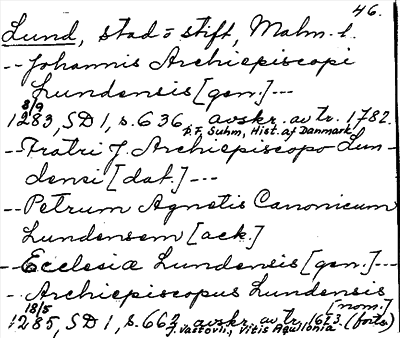 46.
Lund, stad o stift, Malm. l.
-- Johannis Archiepiscopi
Lundensis [gen.] ---
8/9
1283, SD 1, s. 636, avskr. av tr. 1782.
P. F. Suhm, Hist. af Danmark
-- Fratri J. Archiepiscopo Lun-
densi [dat.] ---
-- Petrum Agnetis Canonicum
Lundensem [ack.]
-- Ecclesiæ Lundensis [gen.] ---
-- Archiepiscopus Lundensis
[nom.]
18/5
1285, SD 1, s. 662 avskr. av tr. 1623. (forts.)
J. Vastovii, Vitis Aquilonia